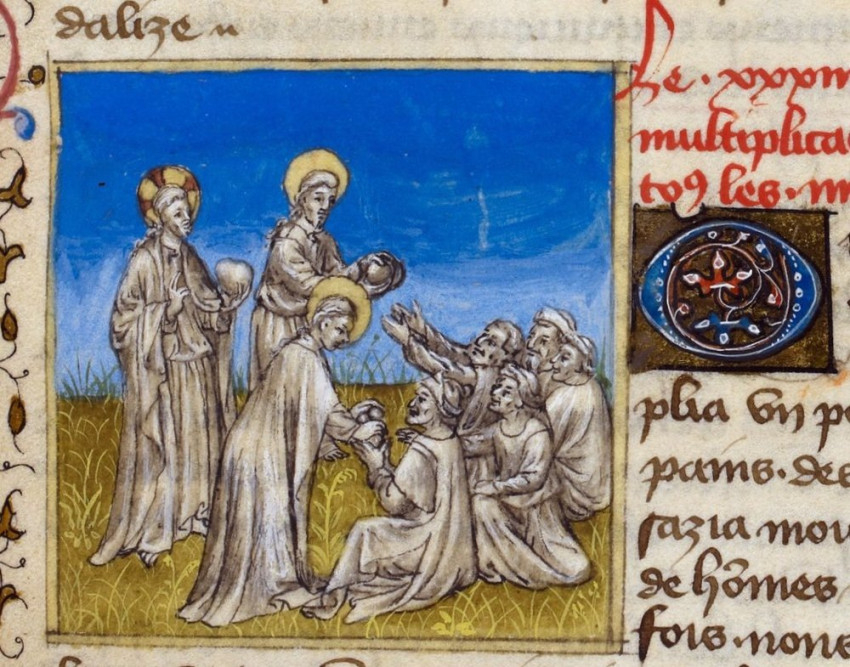 dalize
Le . xxxiii
multiplica
toꝰ les . m
O
plia vn po
pains . des
sazia mou
de hōmes
fois . nous